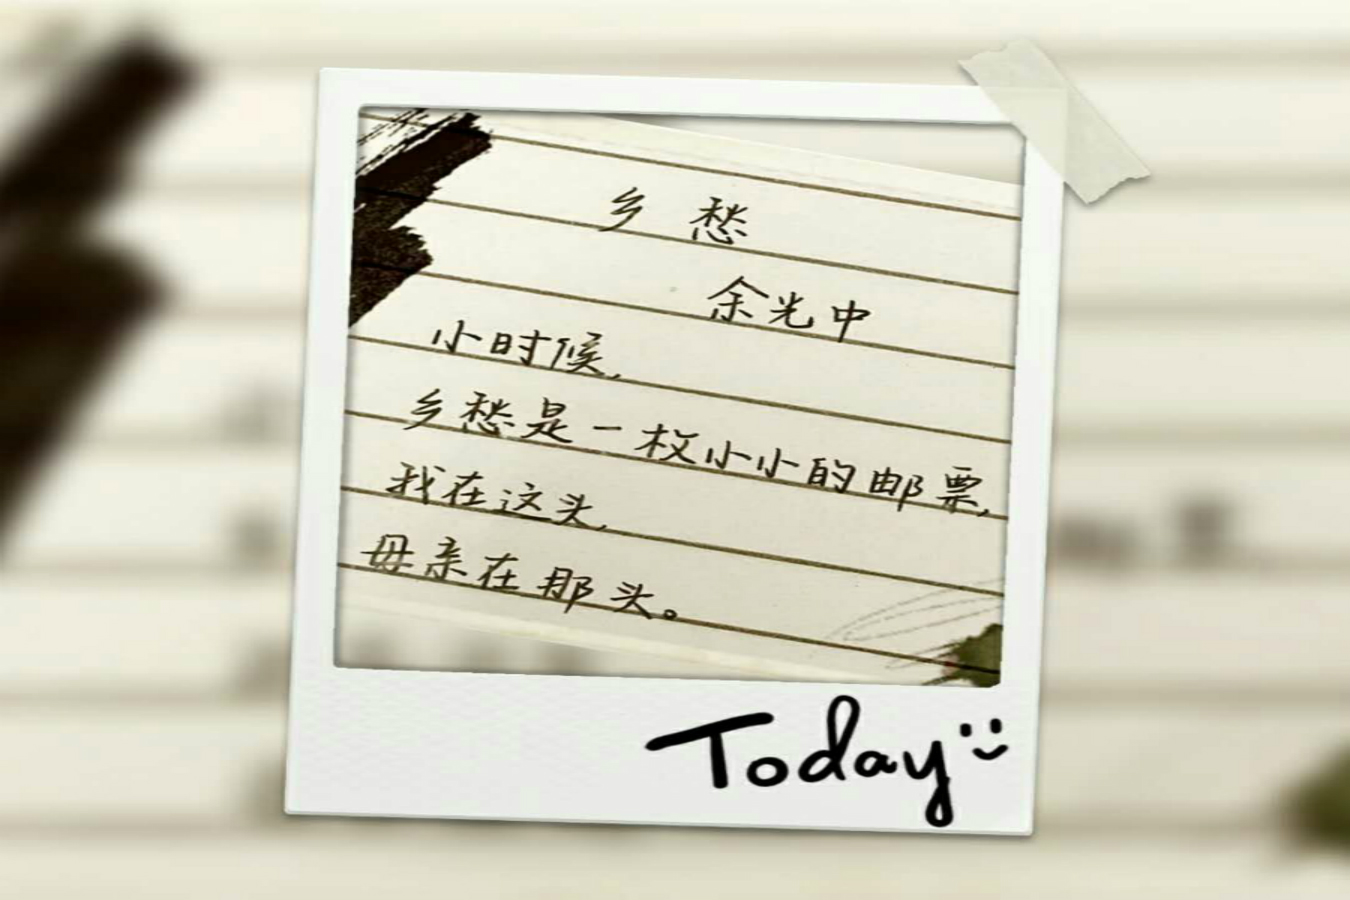 乡愁
余光中
小时候,
乡愁是一枚小小的邮票,
我在这头,
母亲在那头。
Today